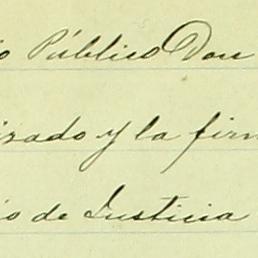 o Público Don
irado y la firm
io de Justicia